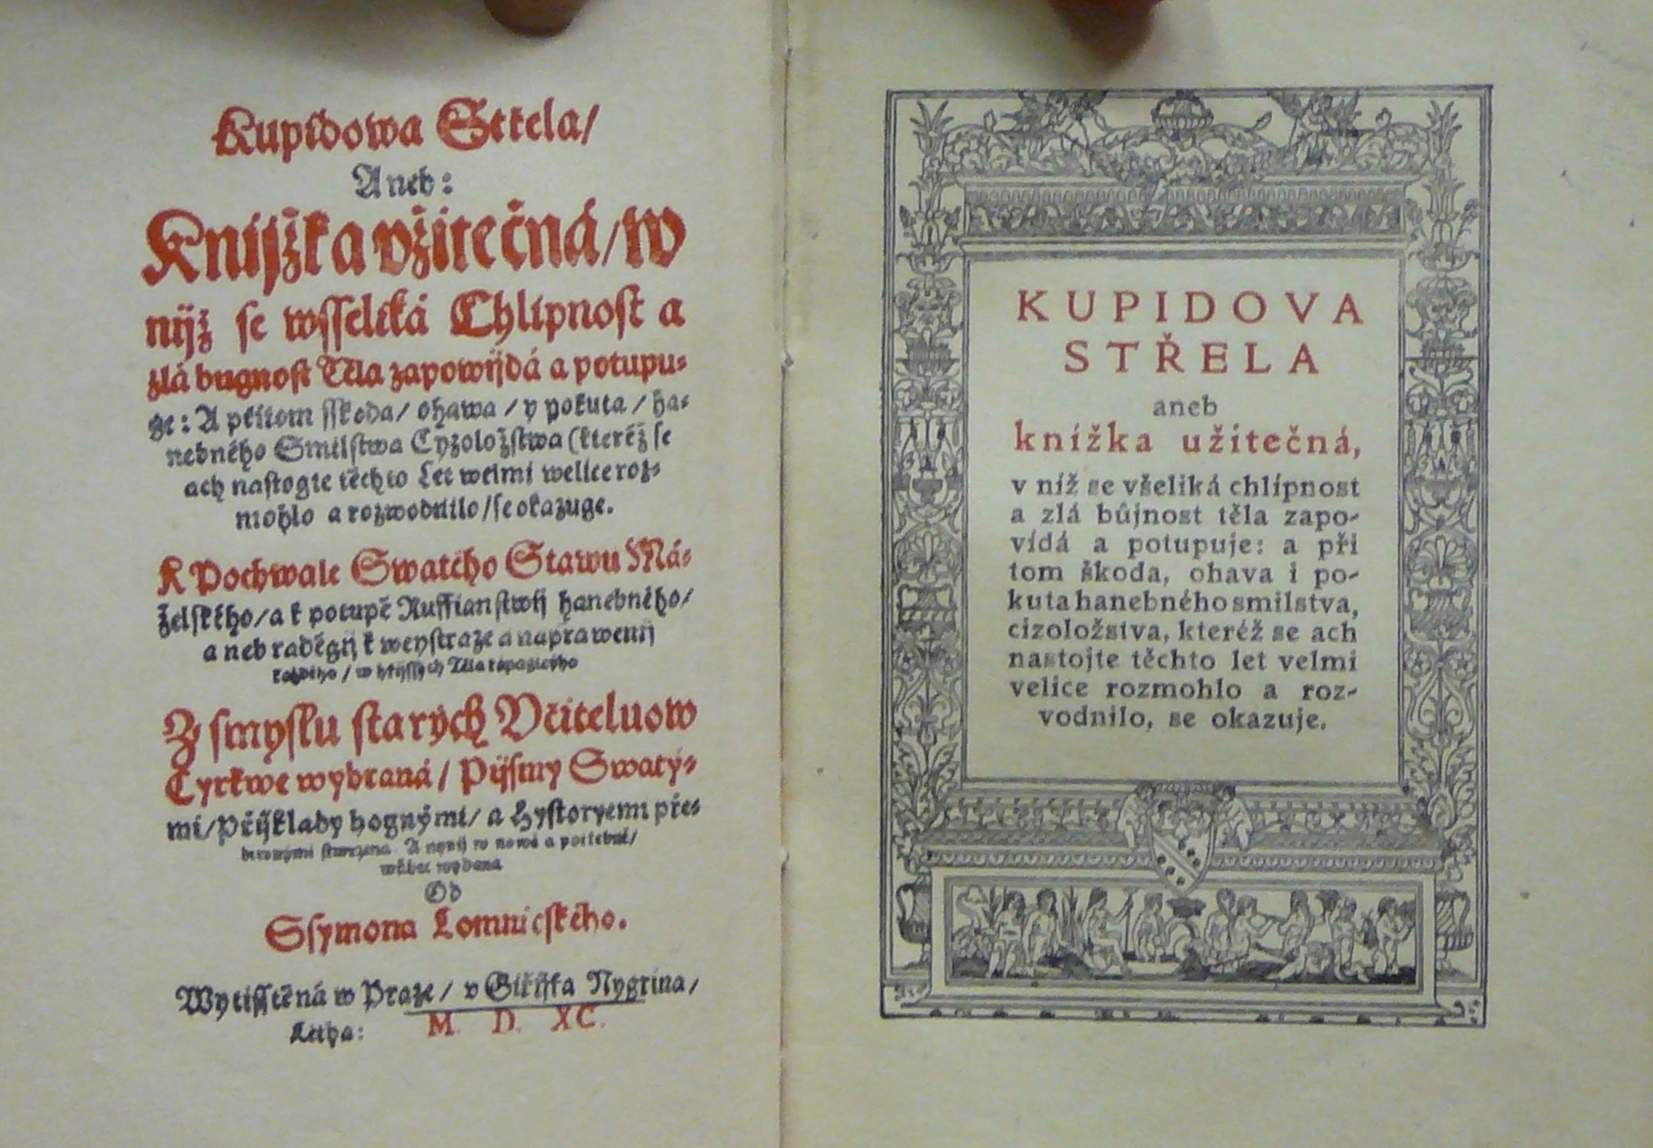 Kupidowa Střela/
Aneb:
Knijžka vžitečná/ w
nijž se wsseliká Chlipnost a
zlá bugnost Těla zapowijdá a potupu-
ge: A přitom sskoda/ ohawa / y pokuta / ha-
nebného Smilstwa Cyzoložstwa (kteréž se
ach nastogte těchto Let welmi welice roz-
mohlo a rozwodnilo/ se okazuge.
K Pochwale Swatého Stawu Má-
želského/ a k potupě Ruffianstwij hanebného/
aneb raděgij k weystraze a naprawenij
každého / w hřijssých Těla
Z smyslu starých Včiteluow
Cyrkwe wybraná / Pijsmy Swatý-
mi/ Přijklady hognými/ a Hystoryemi pře-
A nynij w nowě a potřebně/
wůbec wydana
Od
Ssymona Lomnického.
Wytisstěná w Praze / v Giřijka Nygrina/
Létha: M. D. XC.
KUPIDOVA
STŘELA
aneb
knížka užitečná,
v níž se všeliká chlípnost
a zlá bůjnost těla zapo-
vídá a potupuje: a při
tom škoda, ohava i po-
kuta hanebného smilstva,
cizoložstva, kteréž se ach
nastojte těchto let velmi
velice rozmohlo a roz-
vodnilo, se okazuje.